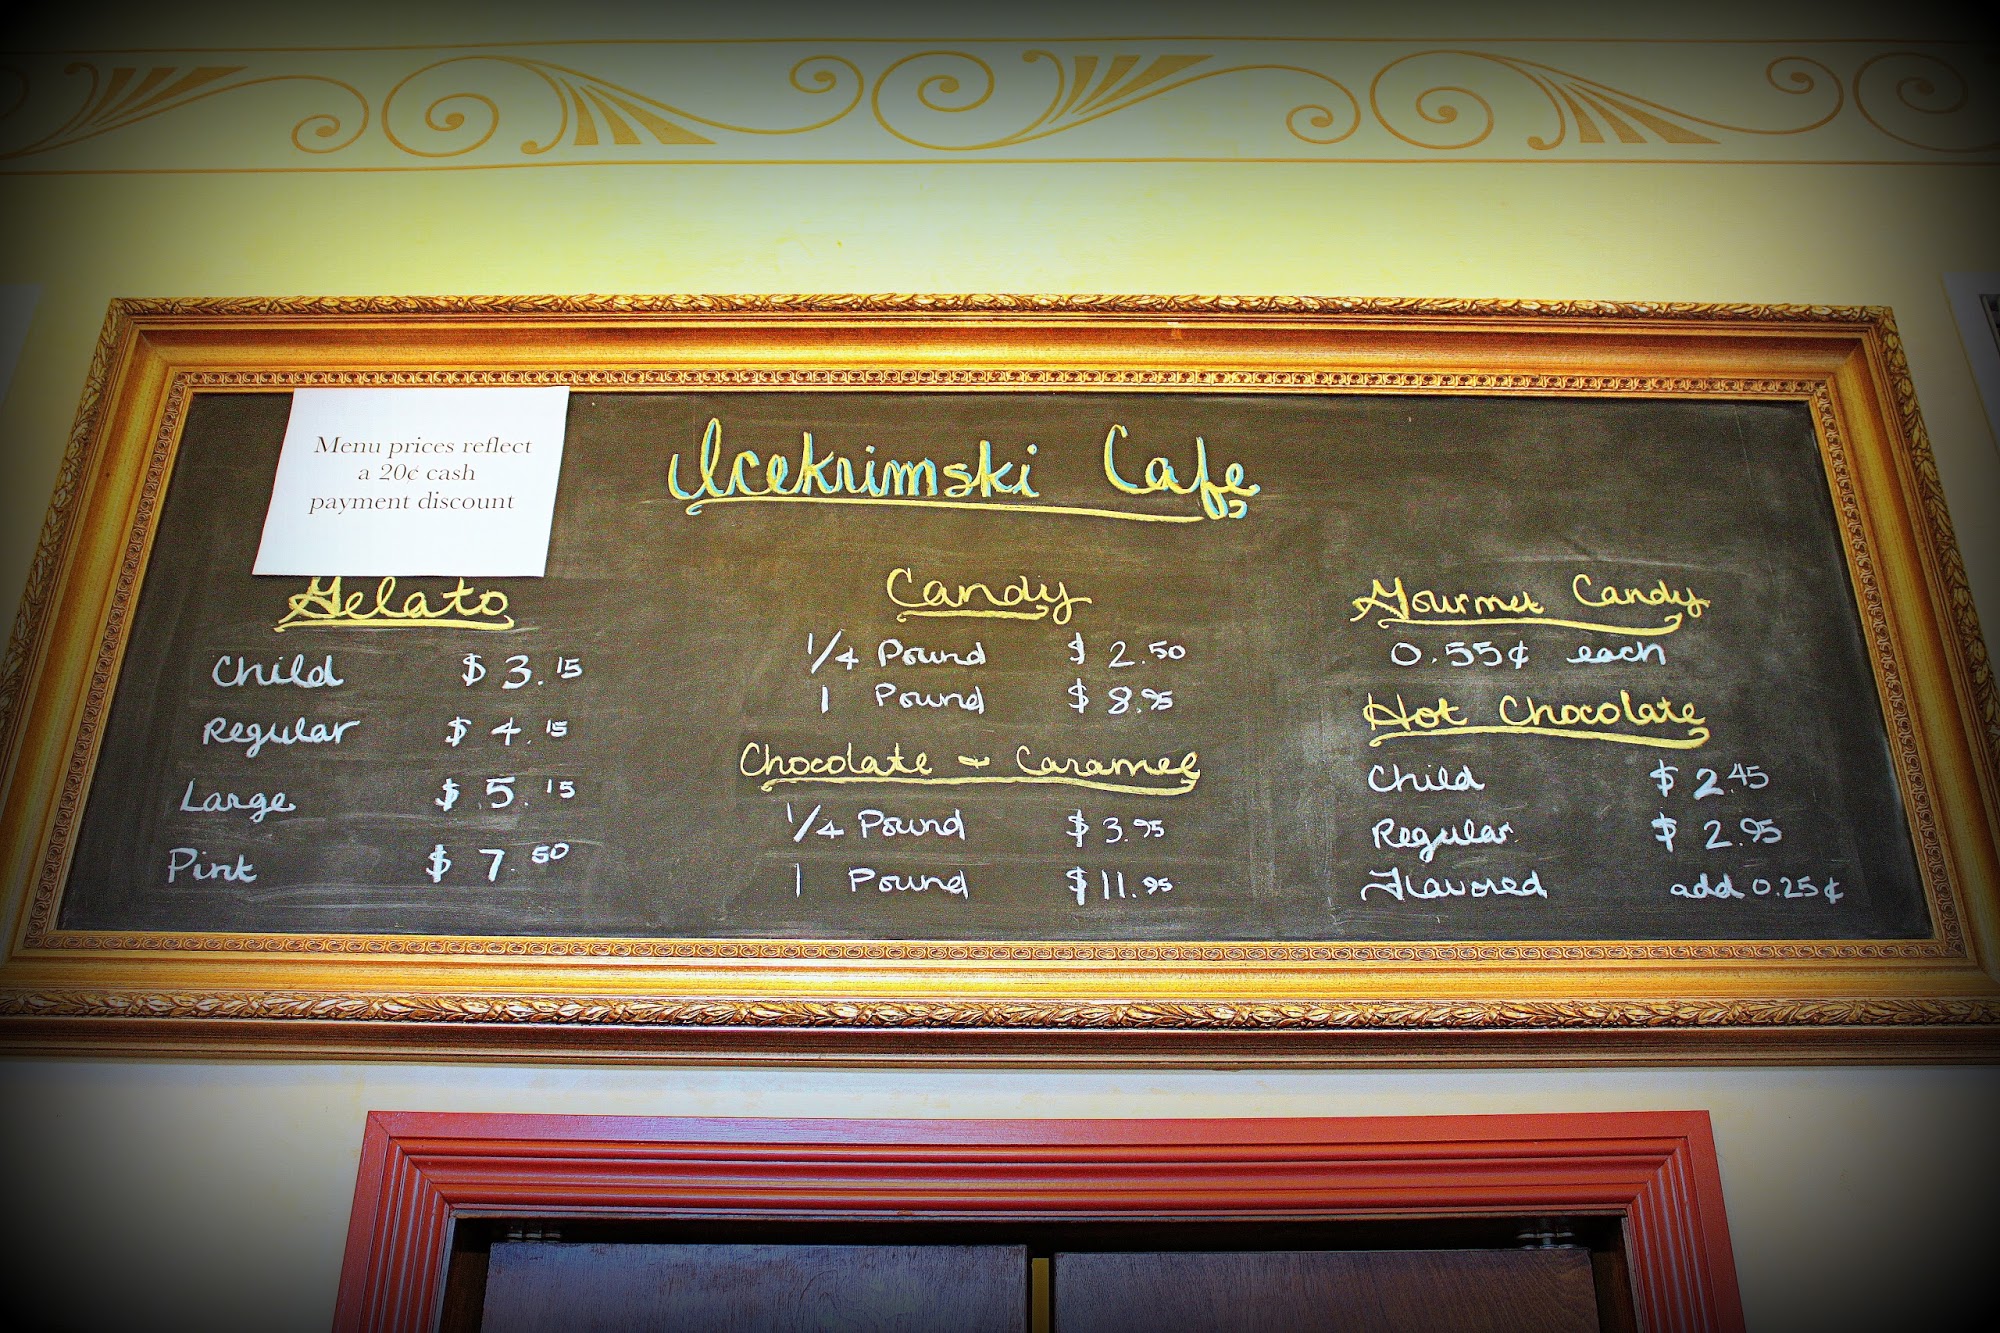 Menu prices reflect
a 20¢ cash
payment discount
Icekrimski Cafe
Gelato
Child $3.15
Regular $4.15
Large $5.15
Pint $7.50
Candy
1/4 Pound $2.50
1 Pound $8.95
Chocolate & Caramel
1/4 Pound $3.95
1 Pound $11.95
Gourmet Candy
0.55¢ each
Hot Chocolate
Child $2.45
Regular $2.95
Flavored add 0.25¢